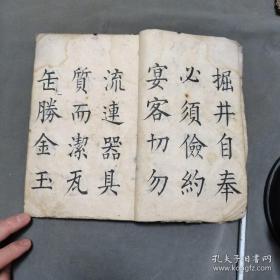 掘井自奉
必須儉約
宴客切勿
流連器具
質而潔瓦
缶勝金玉
孔夫子旧书网